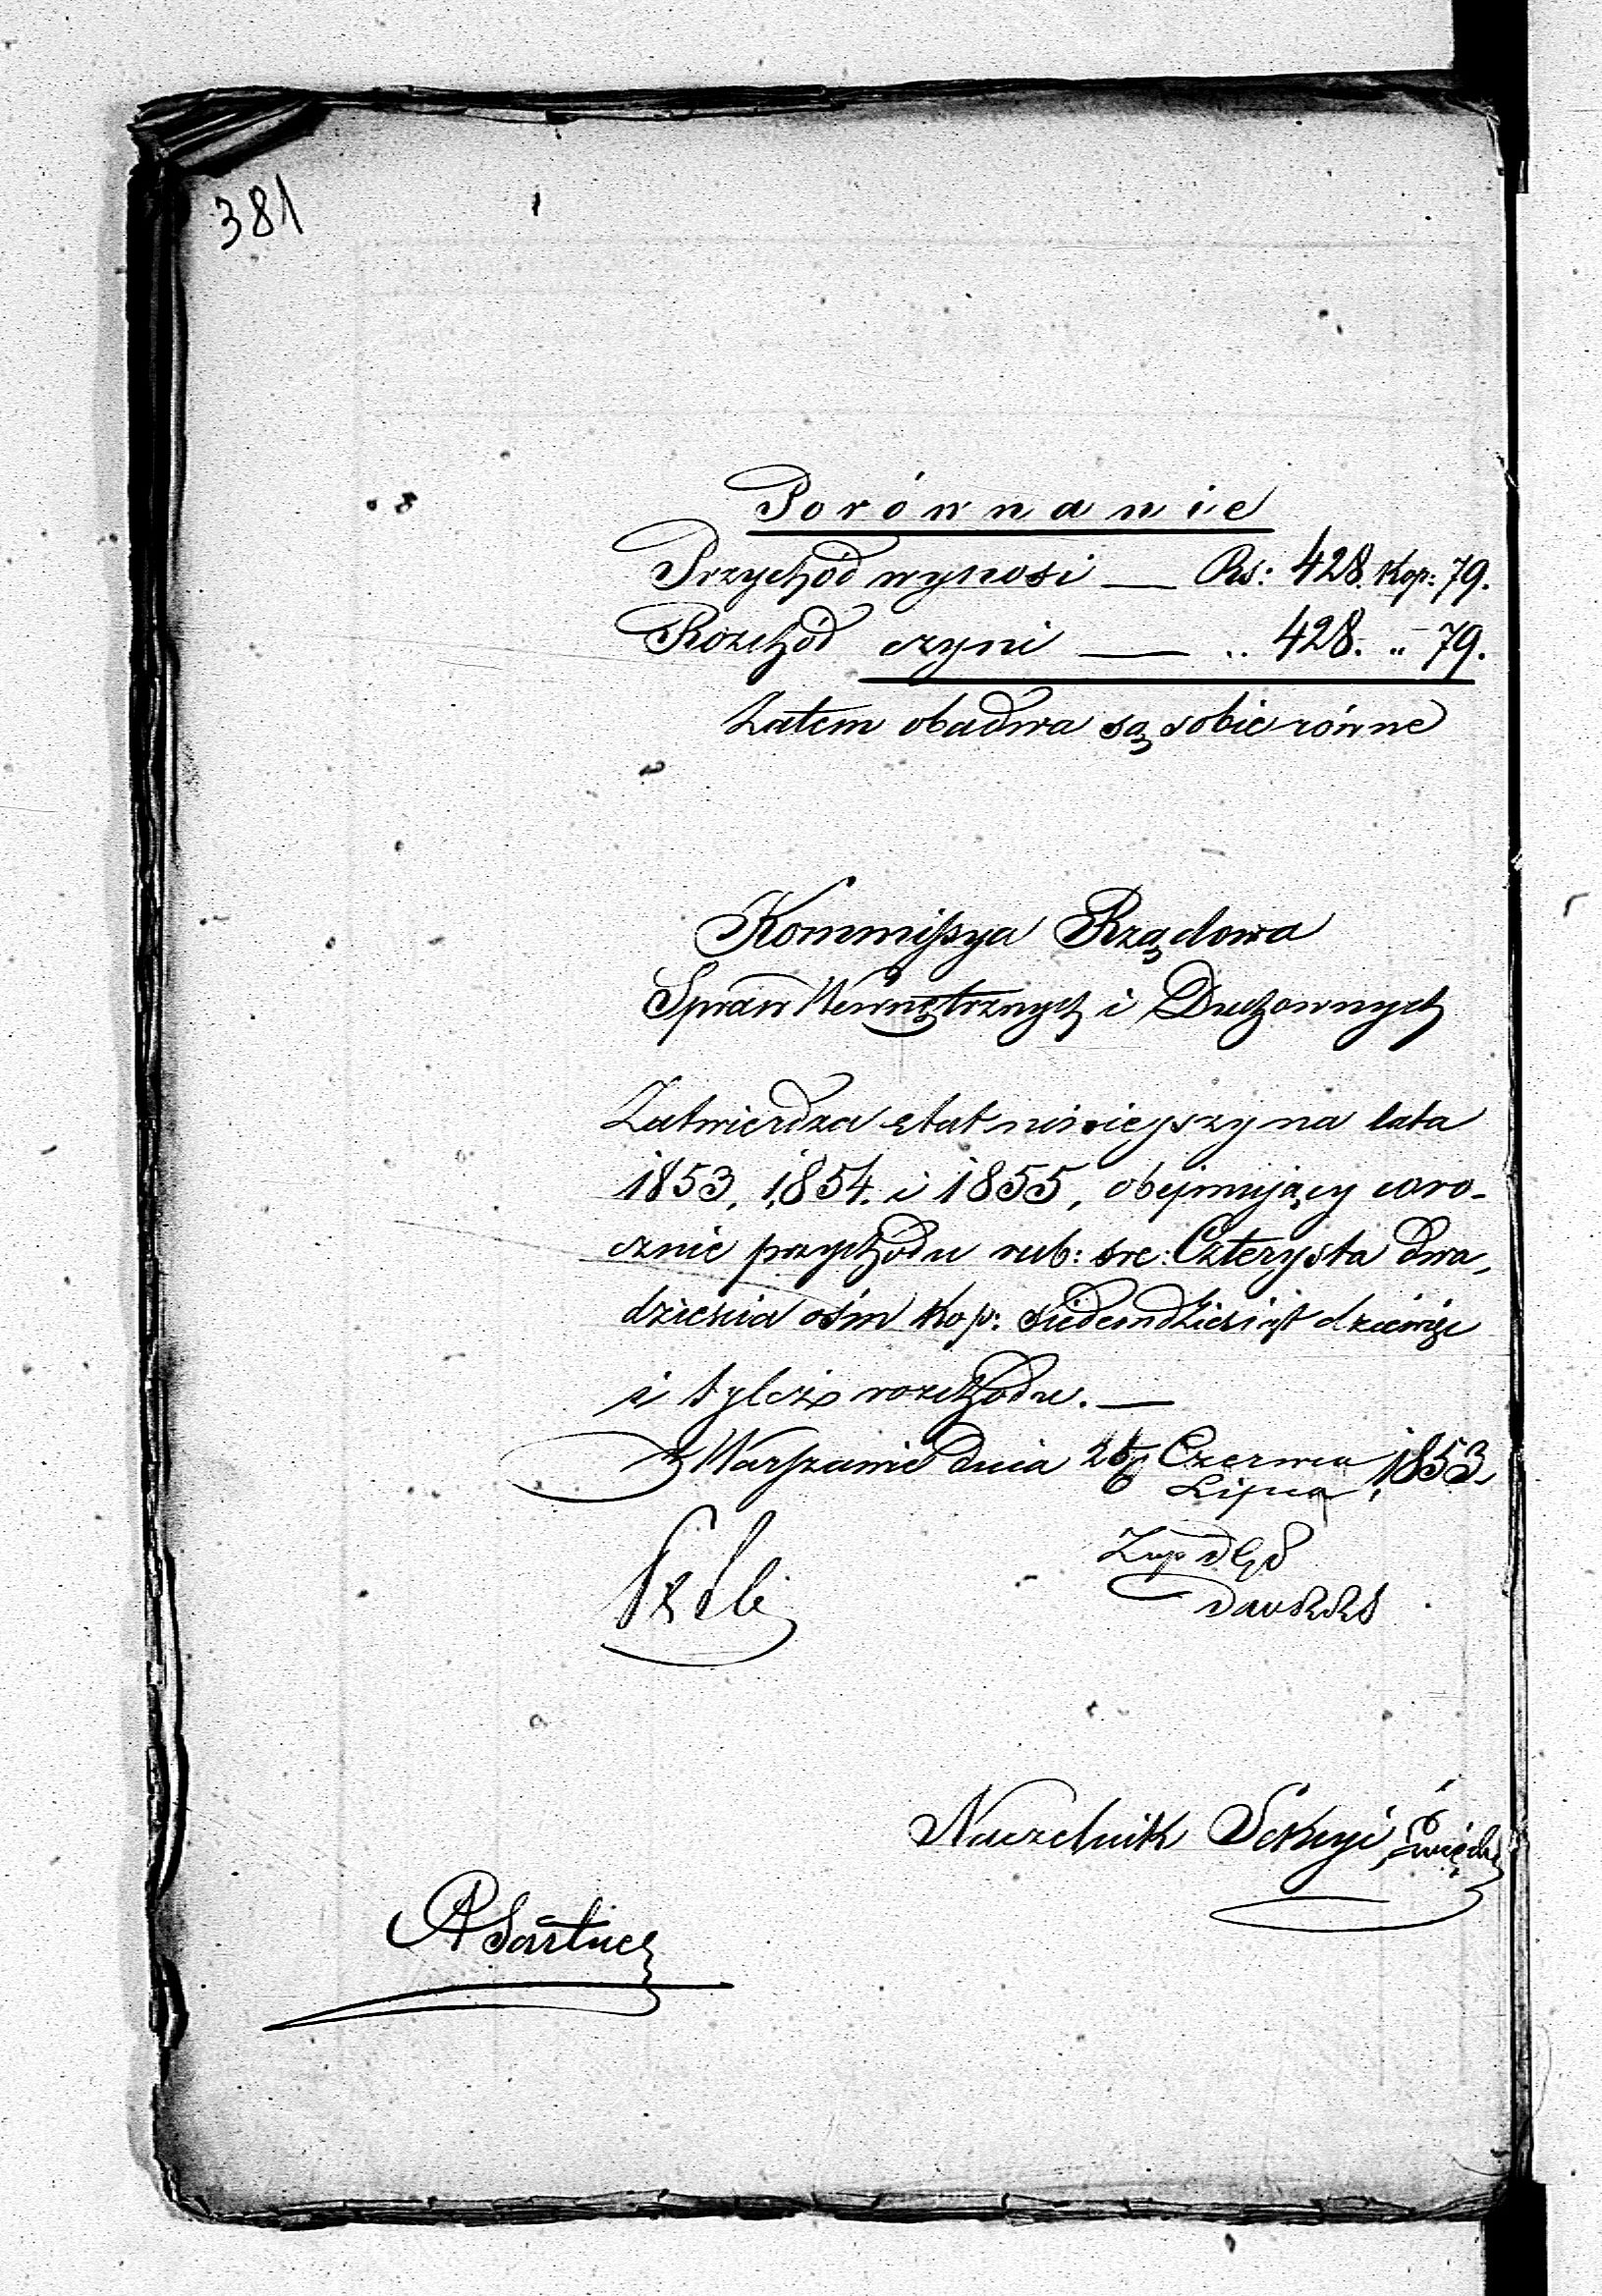 381
Porównanie
Przychód wynosi — Rs: 428. Kop: 79.
Rozchód czyni — .. 428. .. 79.
Zatem obadwa są sobie równe
Kommissya Rządowa
Spraw Wewnętrznych i Duchownych
Zatwierdza etat niniejszy na lata
1853, 1854. i 1855, obejmujący coro-
cznie przychodu rub: sre: Czterysta dwa,
dzieścia ośm Kop: siedemdziesiąt dziewięć
i tyleż rozchodu. —
w Warszawie dnia Czerwca 1853
Lipca
Naczelnik Sekcyi